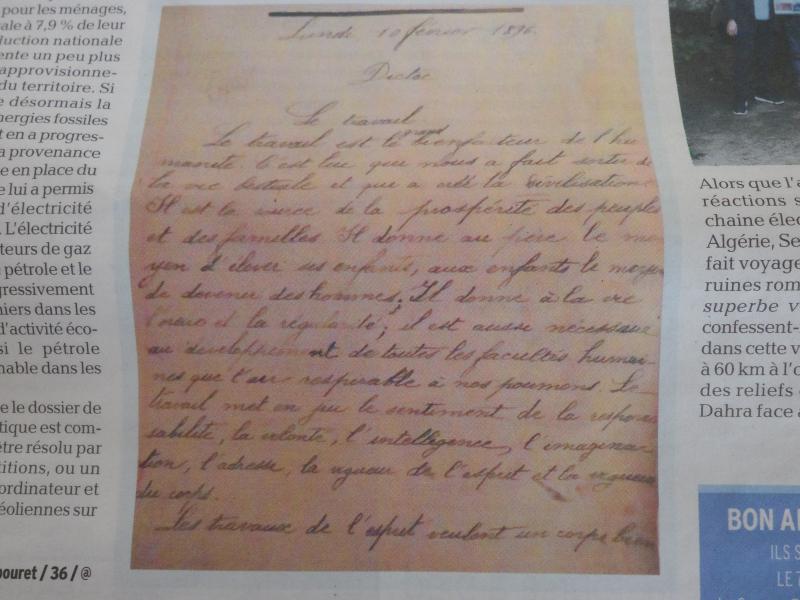 pour les ménages,
ale à 7,9 % de leur
duction nationale
ente un peu plus
approvisionne-
du territoire. Si
e désormais la
nergies fossiles
t en a progres-
a provenance
e en place du
e lui a permis
d'électricité
. L'électricité
teurs de gaz
pétrole et le
gressivement
niers dans les
d'activité éco-
si le pétrole
nable dans les
e le dossier de
tique est com-
être résolu par
titions, ou un
ordinateur et
éoliennes sur
pouret / 36 / @
Lundi 10 février 1896
Dictée
Le travail
Le travail est le grand bienfaiteur de l'hu
manité. C'est lui que nous a fait sortir de
la vie bestiale et qui a créé la civilisation
Il est la source de la prospérité des peuples
et des familles Il donne au père le mo
yen d'élever ses enfants, aux enfants le moyen
de devenir des hommes; Il donne à la vie
l'ordre et la régularité; il est aussi nécessaire
au développement de toutes les facultés humai
nes que l'air respirable à nos poumons. Le
travail met en jeu le sentiment de la respon
sabilité, la volonté, l'intelligence, l'imagina
tion, l'adresse, la vigueur de l'esprit et la vigueur
du corps.
Les travaux de l'esprit veulent un corps bien
Alors que l'a
réactions s
chaine élec
Algérie, Se
fait voyage
ruines rom
superbe v
confessent-
dans cette v
à 60 km à l'o
des reliefs
Dahra face a
BON A
ILS S
LE 7